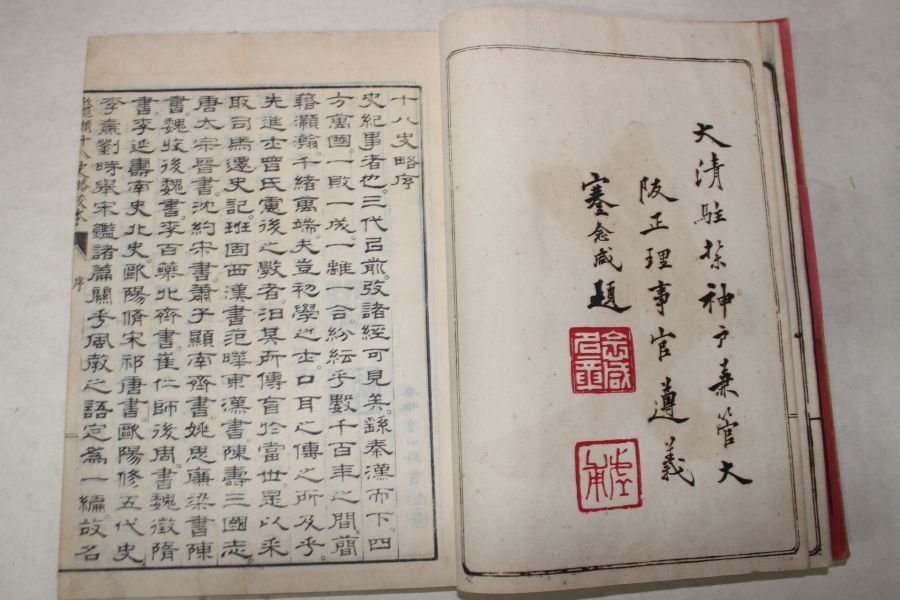 大清駐紮神戸兼管大
阪正理事官遵義
蹇念咸題
念咸名章
十八史略序
史紀事者也。三代㠯前。攷諸經可見矣。繇秦漢而下。四
方萬國。一敗一成。一離一合。紛紜乎數千百年之間。簡
籍灝瀚。千緒萬端。夫豈初學之士。口耳之傳之所及乎。
先進士曾氏慮後之斆者。汨其所傳盲於當世。是以采
取司馬遷史記。班固西漢書。范曄東漢書。陳壽三國志。
唐太宗晉書。沈約宋書。蕭子顯南齊書。姚思廉梁書陳
書。魏收後魏書。李百藥北齊書。崔仁師後周書。魏徵隋
書。李延壽南史北史。歐陽脩宋祁唐書。歐陽修五代史。
李燾劉時舉宋鑑。諸篇關乎風敎之語。定爲一編。故名
十八史略校本 序